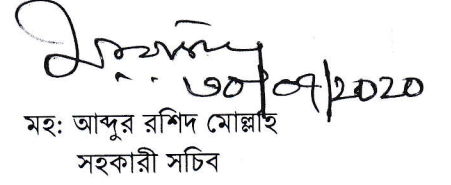 ৩০/০৭/2020
মহ: আব্দুর রশিদ মোল্লাহ
সহকারী সচিব